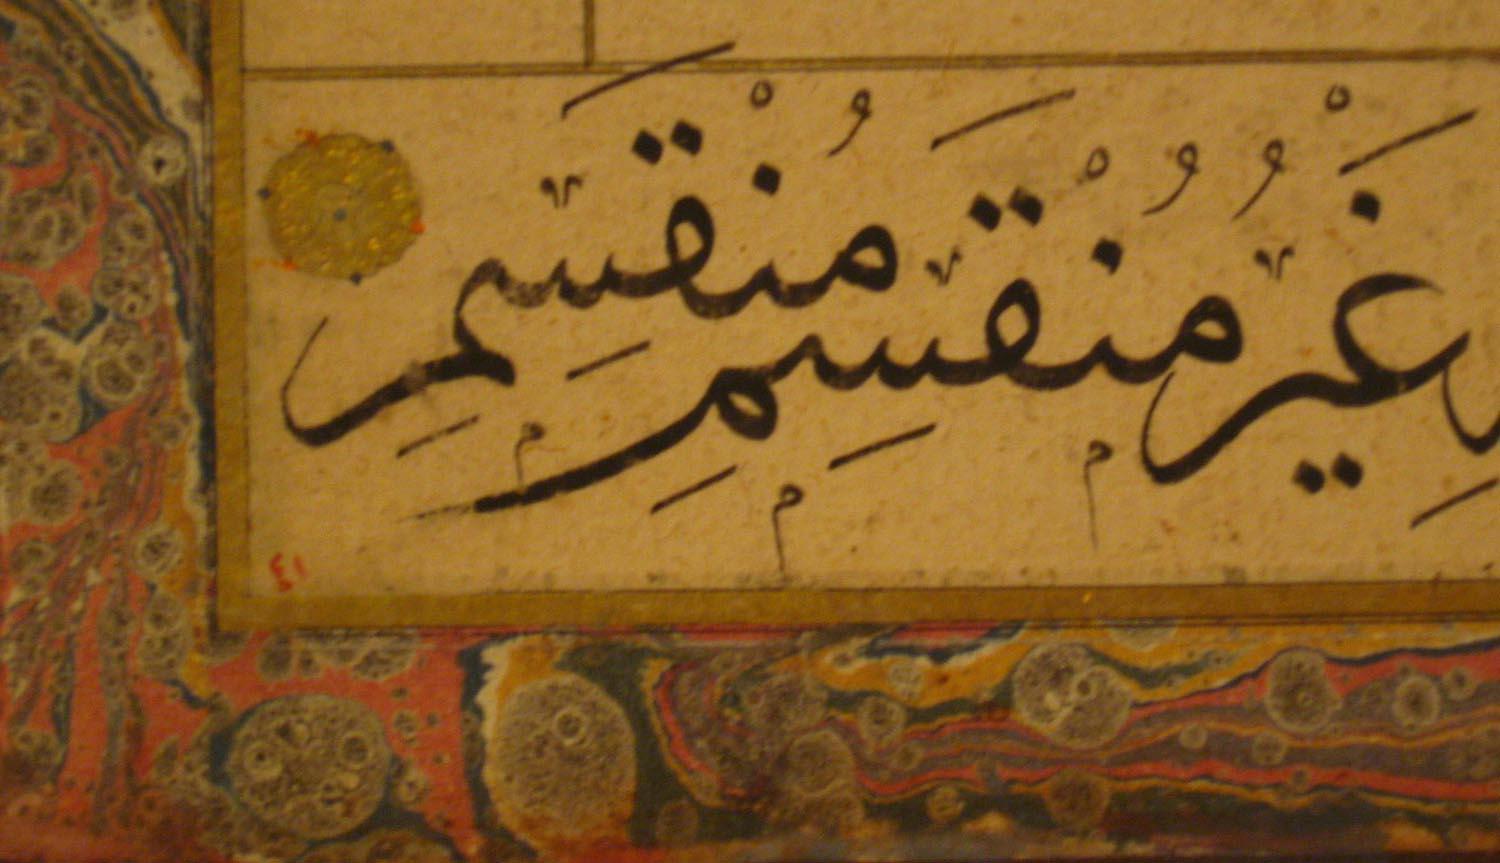 غَيْرُ مُنْقَسِمِ مُنْقَسِمِ